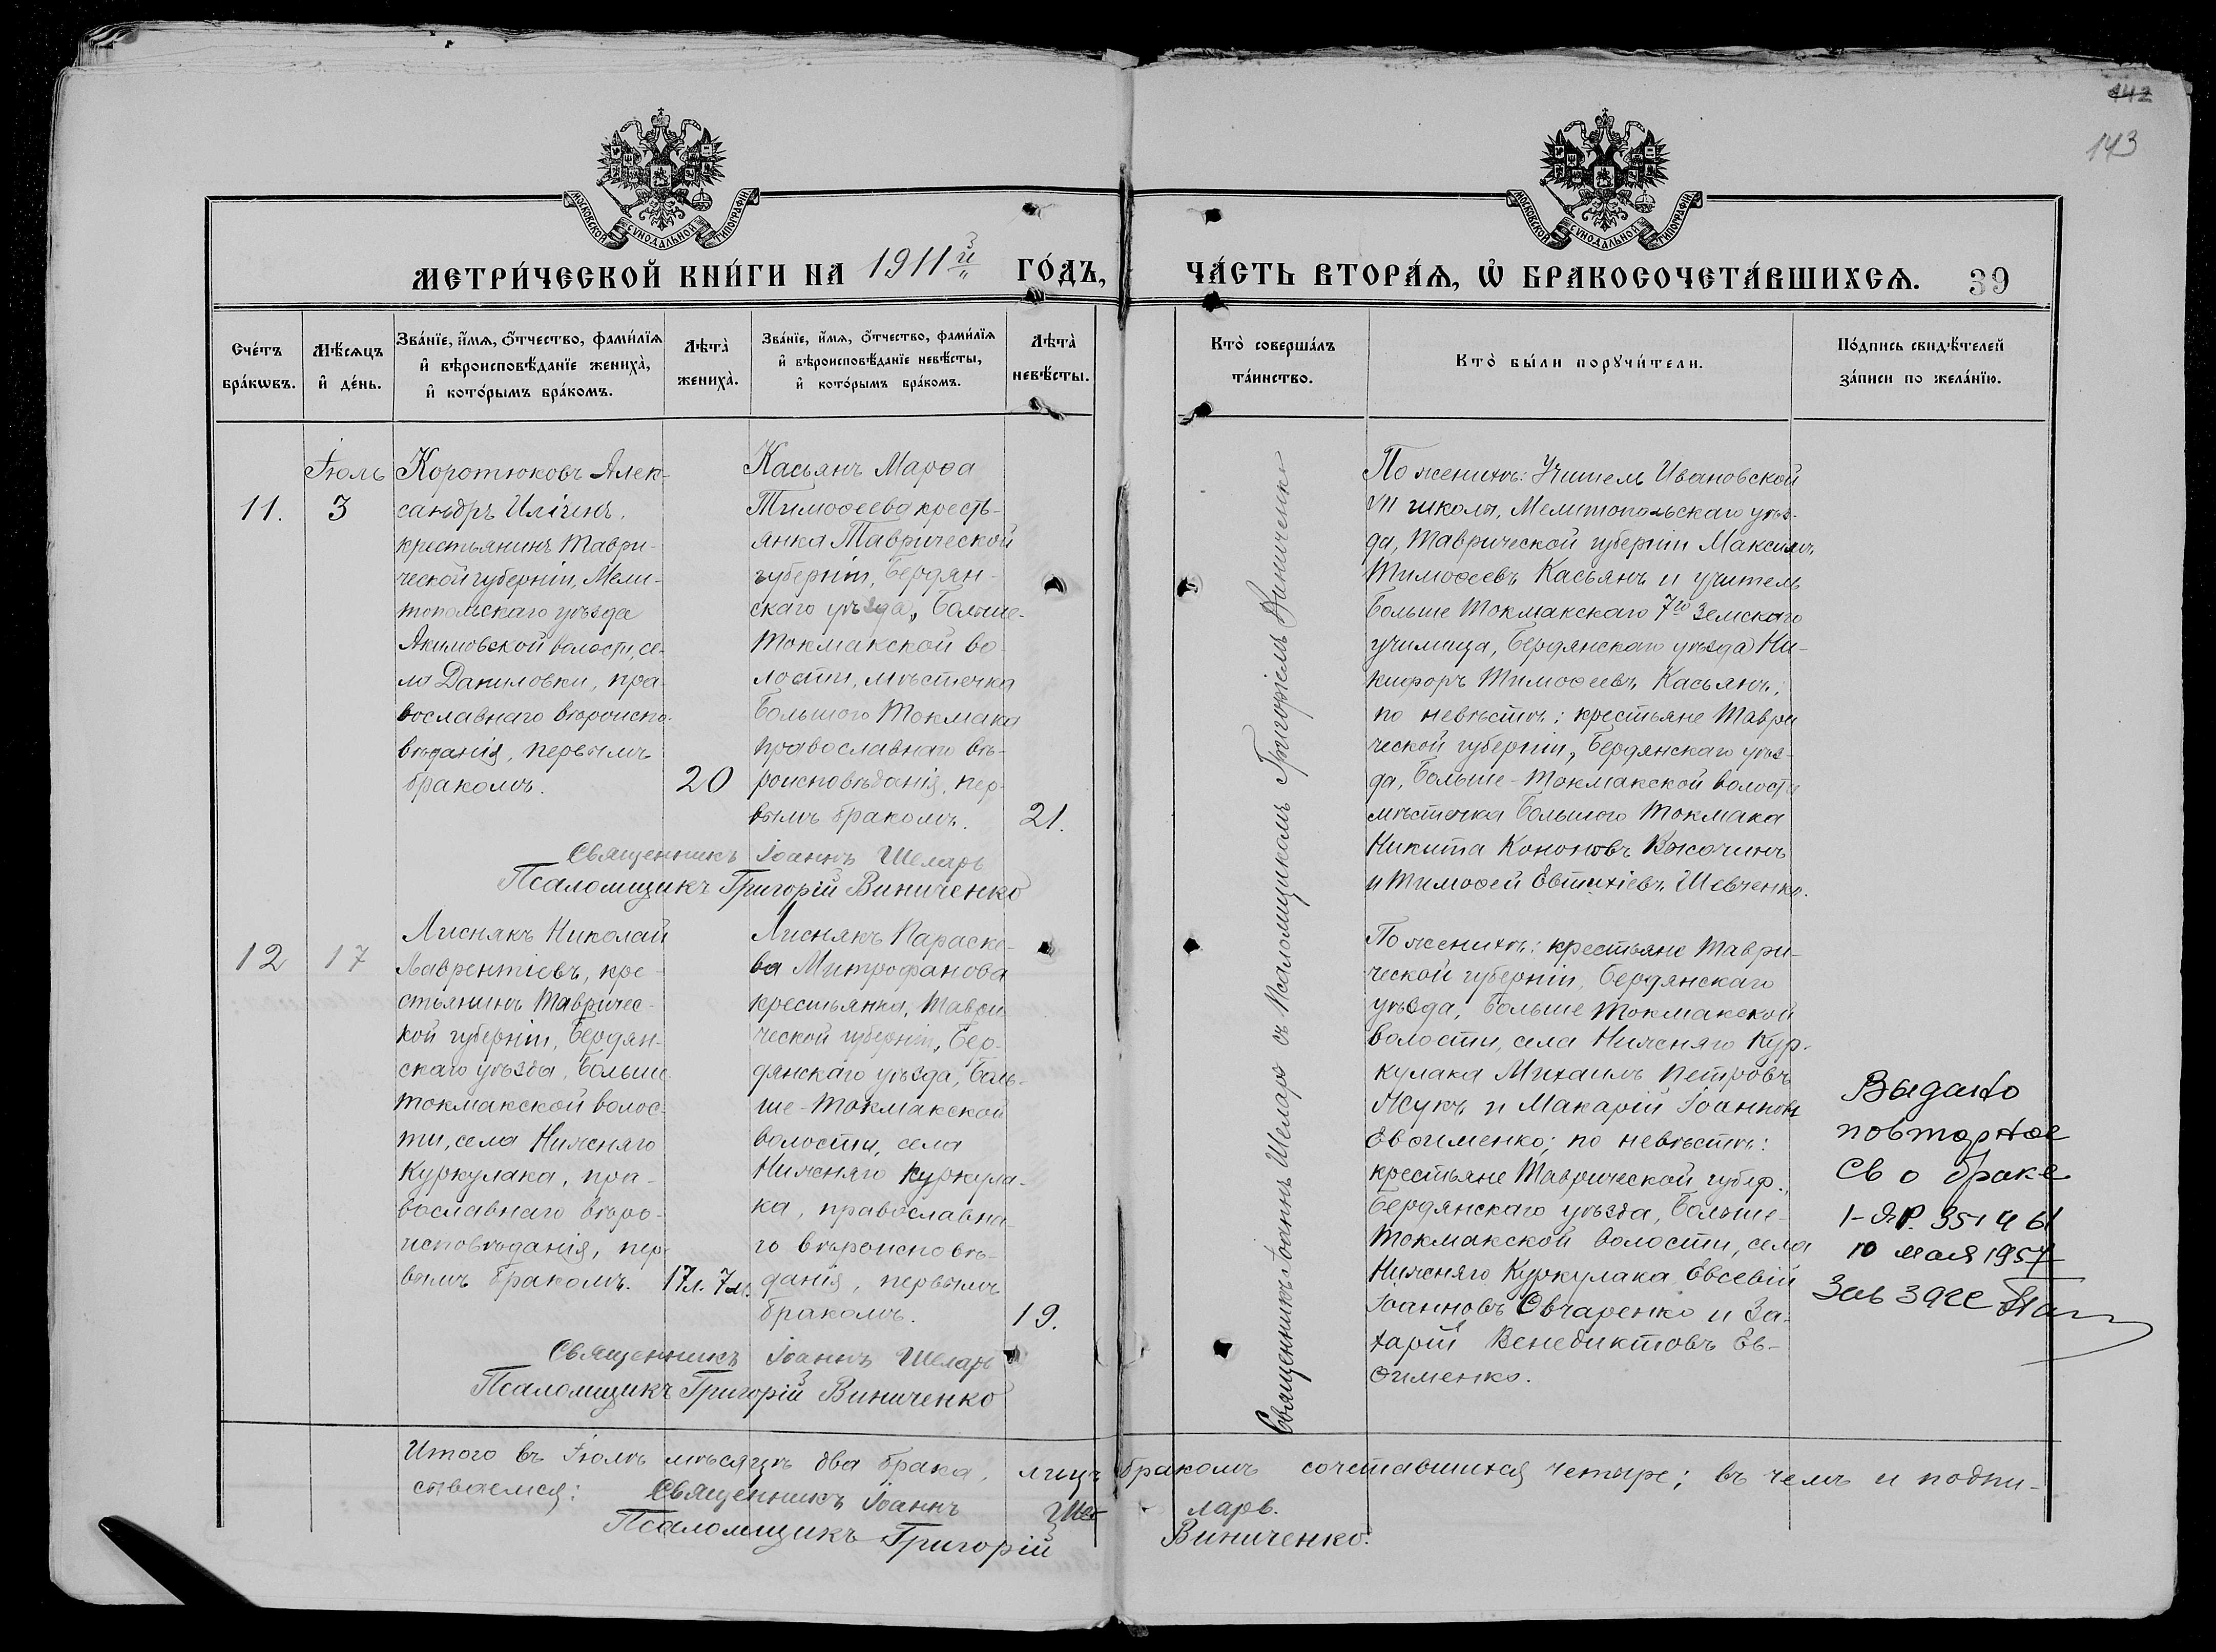 142
143
МОСКОВСКОЙ СѴНОДАЛЬНОЙ ТИПОГРАФІИ
МОСКОВСКОЙ СѴНОДАЛЬНОЙ ТИПОГРАФІИ
МЕТРИ́ЧЕСКОЙ КНИ́ГИ НА 1911й ГО́ДЪ,
ЧА́СТЬ ВТОРА́Ѧ, Ѡ БРАКОСОЧЕТА́ВШИХСѦ. 39
Сче́тъ
бра́кѡвъ.
Мѣ́сѧцъ
и҆ де́нь.
Зва́нїе, и҆́мѧ, ѻ҆́тчество, фами́лїѧ
и҆ вѣроисповѣ́данїе жениха̀,
и҆ кото́рымъ бра́комъ.
Лѣ́та̀
жениха̀.
Зва́нїе, и҆́мѧ, ѻ҆́тчество, фами́лїѧ
и҆ вѣроисповѣ́данїе невѣ́сты,
и҆ кото́рымъ бра́комъ.
Лѣ́та̀
невѣ́сты.
Кто̀ соверша́лъ
та́инство.
Кто̀ бы́ли порꙋчи́тели.
По́дпись свидѣ́телей
за́писи по жела́нїю.
11.
Іюль
3
Коротюковъ Алек-
сандръ Иліинъ,
крестьянинъ Таври-
ческой губерніи, Мели-
топольскаго уѣзда
Акимовской волости, се-
ла Даниловки, пра-
вославнаго вѣроиспо-
вѣданія, первымъ
бракомъ.
20
Касьянъ Марѳа
Тимоѳеева кресть-
янка Таврической
губерніи, Бердян-
скаго уѣзда, Больше-
Токмакской во-
лости, мѣстечка
Большого Токмака
православнаго вѣ-
роисповѣданія, пер-
вымъ бракомъ.
21.
Священникъ Іоаннъ Шеларь
Псаломщикъ Григорій Виниченко
Священникъ Іоаннъ Шеларь съ Псаломщикомъ Григоріемъ Виниченко
По женихѣ: Учитель Ивановской
VII школы, Мелитопольскаго уѣз-
да, Таврической губерніи Максимъ
Тимоѳеевъ Касьянъ и учитель
Больше Токмакскаго 7го Земскаго
училища, Бердянскаго уѣзда Ни-
кифоръ Тимоѳеевъ Касьянъ;
по невѣстѣ: крестьяне Таври
ческой губерніи, Бердянскаго уѣз-
да, Больше-Токмакской волости
мѣстечка Большого Токмака
Никита Кононовъ Височинъ
и Тимоѳей Евтихіевъ Шевченко.
12
17
Лиснякъ Николай
Лаврентіевъ, кре-
стьянинъ Тавричес-
кой губерніи, Бердян-
скаго уѣзда, Больше
Токмакской волос-
ти, села Нижняго
Куркулака, пра-
вославнаго вѣро-
исповѣданія, пер-
вымъ бракомъ.
17л. 7м.
Лиснякъ Параске-
ва Митрофанова
крестьянка, Таври
ческой губерніи, Бер-
дянскаго уѣзда, Боль-
ше-Токмакской
волости, села
Нижняго Куркула-
ка, православна-
го вѣроисповѣ-
данія, первымъ
бракомъ.
19.
Священникъ Іоаннъ Шеларь
Псаломщикъ Григорій Виниченко
По женихѣ: крестьяне Таври-
ческой губерніи, Бердянскаго
уѣзда, Больше Токмакской
волости, села Нижняго Кур-
кулака Михаилъ Петровъ
Жукъ и Макарій Іоанновъ
Евѳименко; по невѣстѣ:
крестьяне Таврической губер.,
Бердянскаго уѣзда, Больше-
Токмакской волости, села
Нижняго Куркулака Евсевій
Іоанновъ Овчаренко и За-
харій Венедиктовъ Ев-
ѳименко.
Выдано
повторное
св о браке
10 мая 1957
Зав ЗАГС
Итого въ Іюлѣ мѣсяцѣ два брака, лицъ бракомъ сочетавшихся четыре; въ чемъ и подпи-
сываемся: Священникъ Іоаннъ Шеларь.
Псаломщикъ Григорій Виниченко.